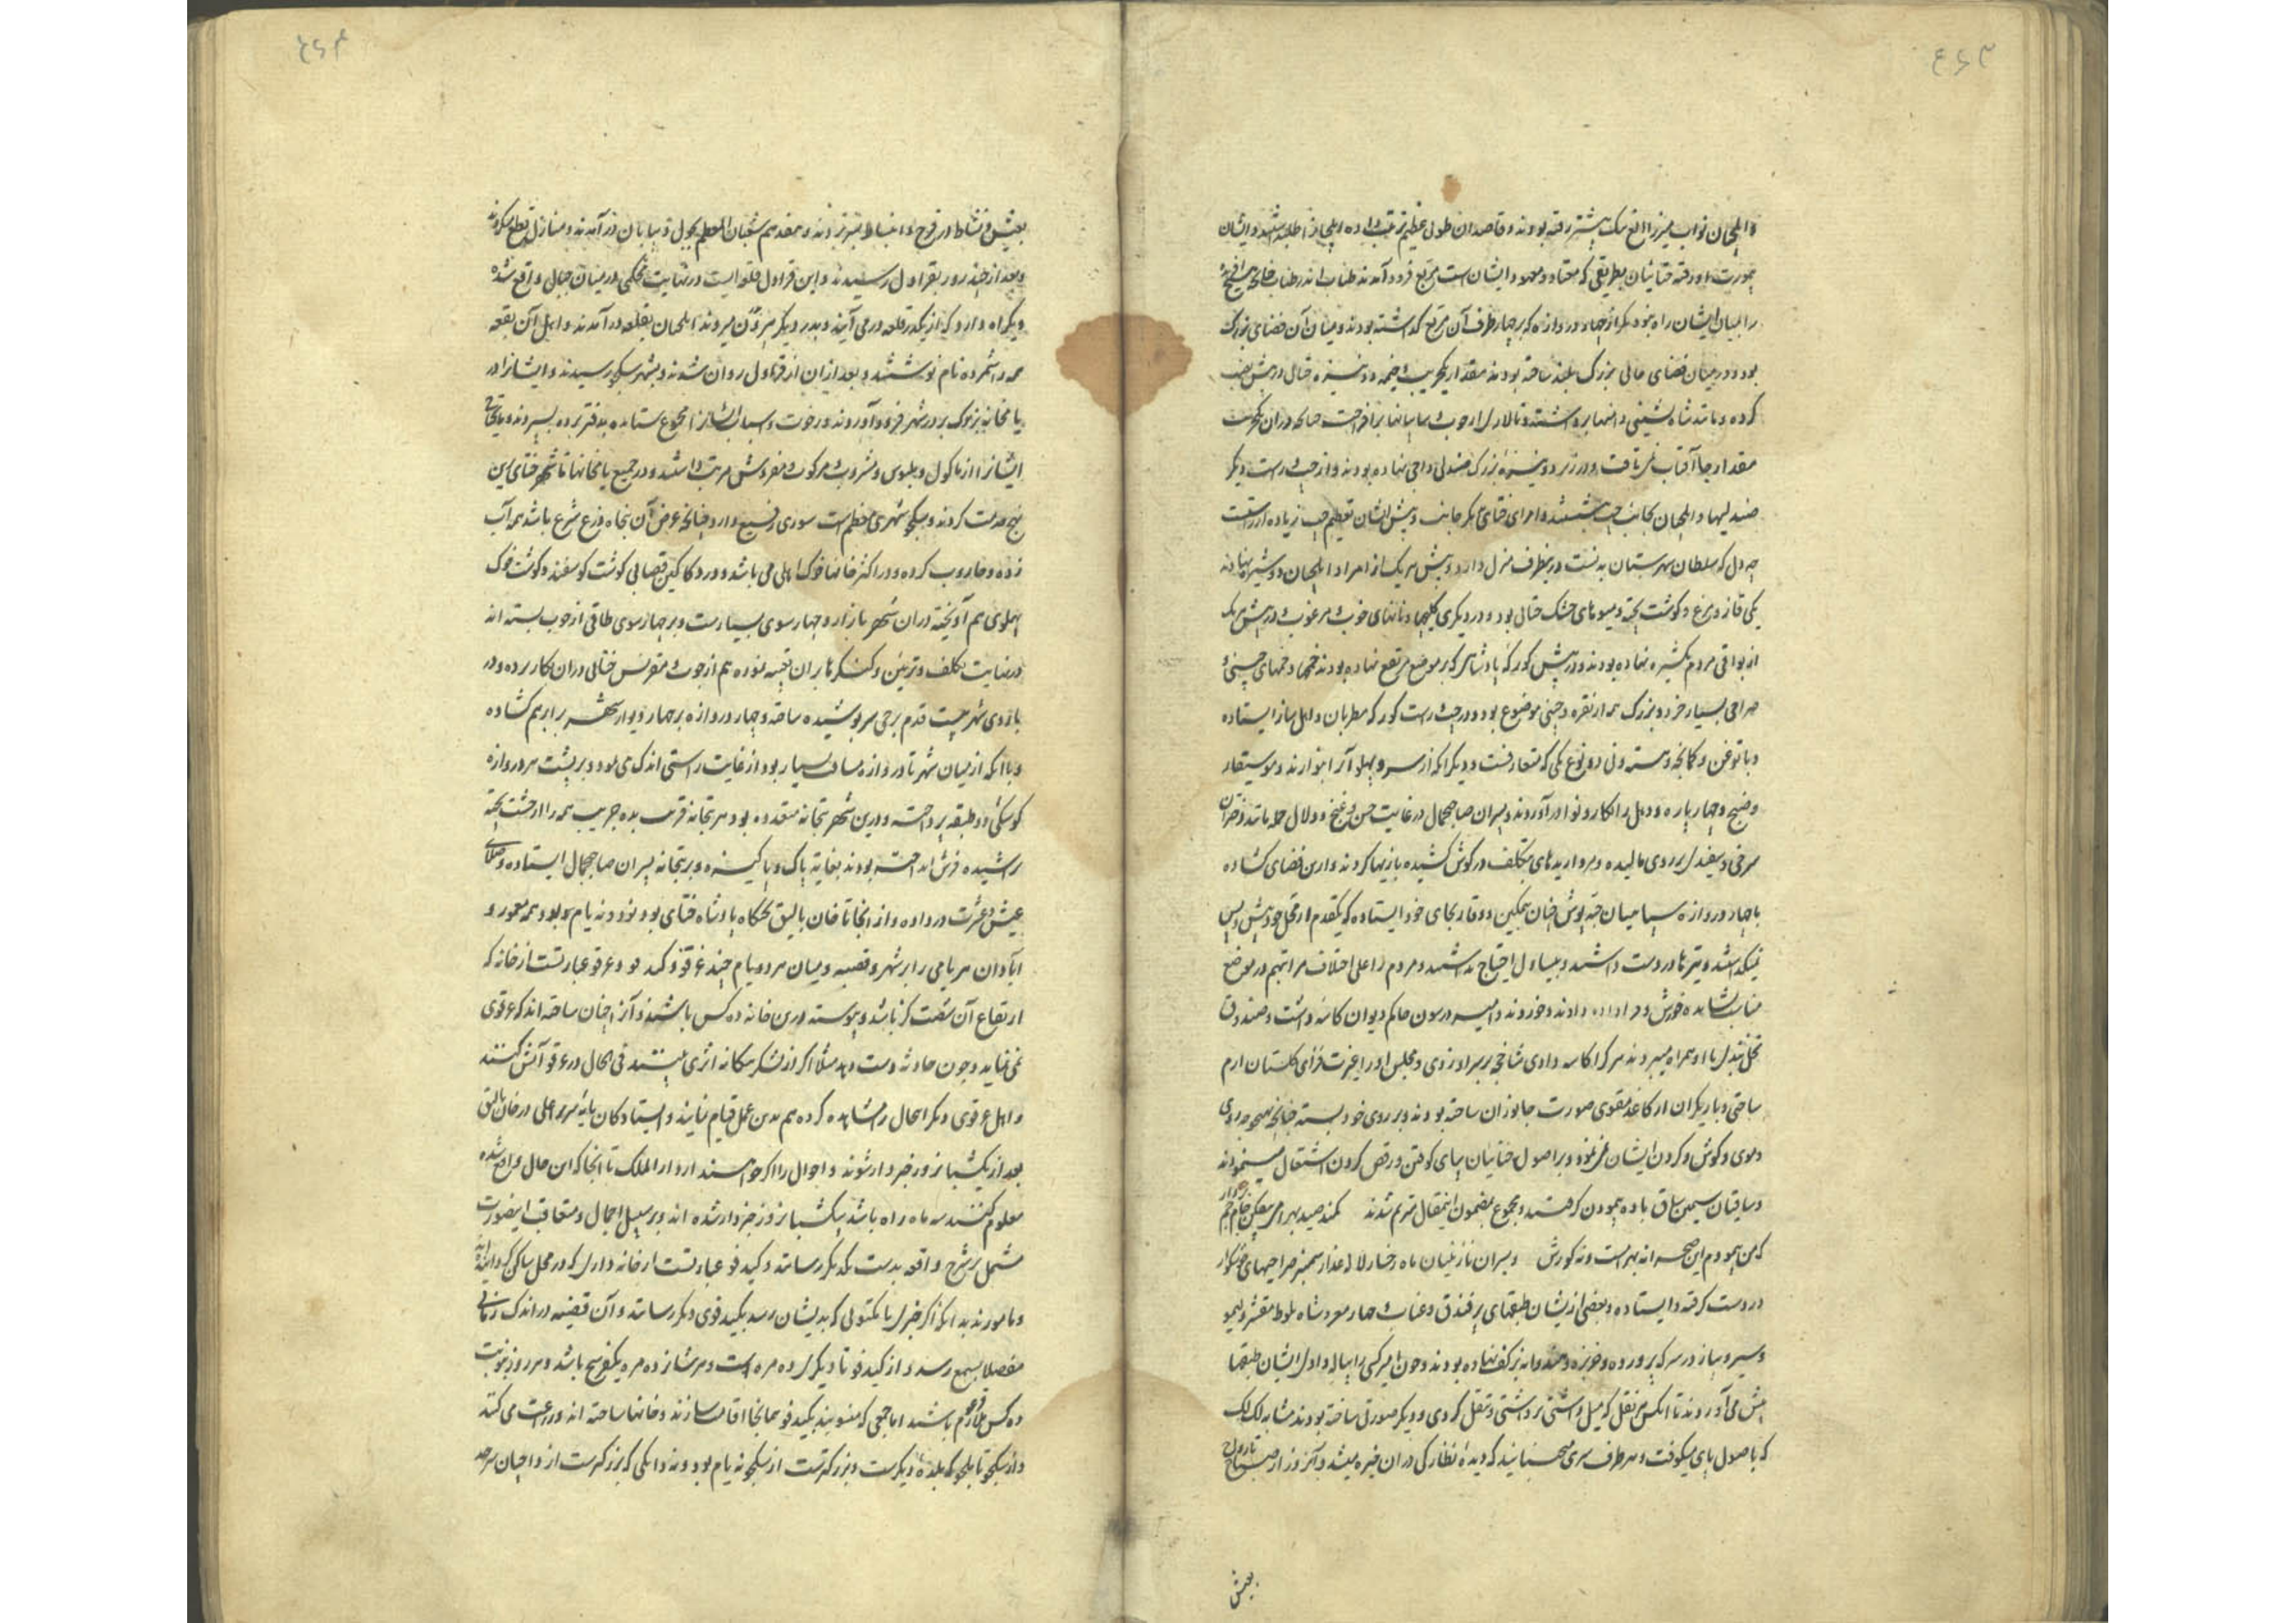 ۴۶۳
و ایلچیان نواب میرزا الغ بیک پیشتر رفته بودند و قاصدان طوی عظیم ترتیب داده ایلچیانرا طلبیدند و ایشان
بصورت اردو رفته ختائیان بطریقی که معتاد و معهود ایشان است مربع فرود آمدند طناب اندر طناب چنانچه هیچ آفریده
را بمیان ایشان راه نبود مگر از چهار دروازه که بر چهار طرف آن مربع گذاشته بودند و میان آن فضای بزرگ
بود و در میان فضای عالی بزرگ بلند ساخته بودند مقدار یکجریب و خیمه دو شیره ختائی در پیش نصب
کرده و مانند شاه نشینی دامنها برداشته و تالاری از چوب و سایبانها برافراخته چنانکه در ان یکجریب
مقدار جا آفتاب نمی تافت و در زیر دو شیره بزرگ صندلی داجی نهاده بودند و از چپ و راست دیگر
صندلیها و ایلچیان بجانب چپ نشستند و امرای ختای بدیگر جانب و پیش ایشان تعظیم چپ زیاده از راست
چه دل که سلطان شهرستان بدنست در بطرف منزل دارد و پیش هر یک از امرا و ایلچیان دو شیره نهادند
یکی قاز و مرغ و گوشت پخته و میوهای خشک ختائی بود و در دیگری کلیچها و نانهای خوب و مرغوب و در پیش هر یک
از بواقی مردم یک شیره نهاده بودند و در پیش کورکه پادشاهی که بر موضع مرتفع نهاده بودند خمها و خمهای چینی و
صراحی بسیار خرد و بزرگ همه از نقره و چینی موضوع بود و در چپ و راست کورکه مطربان و اهل ساز ایستاده
و یاتوغن و کمانچه و سته و نی دو نوع یکی که متعارفست و دیگر آنکه از سر و پهلو آنرا نوازند و موسیقار
و صنج و چهار پاره و دهل را بکار و نوا در آوردند و پسران صاحب جمال در غایت حسن و غنج و دلال همه مانند دختران
سرخی و سفیدی بر روی مالیده و مرواریدهای متکلف در گوش کشیده بازیها کردند و ازین فضای گشاده
با چهار دروازه سپاهیان جبه پوش چنان بتمکین و وقار بجای خود ایستاده که یکقدم از محل خود پیش و پس
نمیگذاشتند و نیزها در دست داشتند و بیساول احتیاج نداشتند و مردم را علی اختلاف مراتبهم در موضع
مناسب نشانده خورش و مرا داده دادند و خوردند و امیر درسون حاکم دیوان کاسه داشت و صندوق
نخل بندی با او همراه میبردند هر کرا کاسه دادی شاخچه بر سر او زدی و مجلس او را غیرت فزای گلستان ارم
ساختی و بازیگران از کاغذ مقوی صورت جانوران ساخته بودند و بر روی خود بسته چنانچه هیچ وجه روی
و موی و گوش و گردن ایشان نمی نمود و بر اصول ختائیان بپای کوفتن و رقص کردن اشتغال مینمودند
و ساقیان سیمین ساق باده پیمودن گرفتند و مجموع بمضمون اینمقال مترنم شدند کمند صید بهرامی بیفکن جام جم بردار
که من پیمودم این صحرا نه بهرامست و نه گورش و پسران نازنینان ماه رخسار لاله عذار سمنبر صراحیهای خوشگوار
در دست گرفته و ایستاده و بعضی از ایشان طبقهای پر فندق و عناب و چهار مغز و شاه بلوط مقشر و لیمو
و سیر و پیاز در سرکه پرورده و خربزه و هندوانه بر کف نهاده بودند و چون امیر کسی را پیاله دادی ایشان طبقها
پیش می آوردند تا آنکس بهر نقل که میل داشتی برداشتی و تنقل کردی و دیگر صورتی ساخته بودند مشابه لک لک
که باصول پای میکوفت و هر طرف سری میجنبانید که دیده نظارگی در ان خیره میشد و آنروز از صباح تا رواح
بعیش
۴۶۴
بعیش و نشاط و فرح و انبساط مترنم بودند و هفدهم شعبان المعظم بچول و بیابان در آمدند و منازل قطع میکردند
و بعد از چند روز بقراول رسیدند و این قراول قلعه ایست در نهایت محکمی در میان جبال واقع شده
و یکراه دارد که از یکدر قلعه در می آیند و بدر دیگر بیرون میروند ایلچیان بقلعه در آمدند و اهل آن بقعه
همه را شمرده نام نوشتند و بعد از ان از قراول روان شدند و بشهر سکجو رسیدند و ایشانرا در
یامخانه بزرگ بر در شهر فرود آوردند و رخوت و اسباب ایشانرا مجموع ستانده بدفتر برده بسپردند و مایحتاج
ایشانرا از ماکول و ملبوس و مشروب و مرکوب و مفروش مرتب داشتند و در جمیع یامخانها تا شهر ختای این
نهج خدمت کردند و سکجو شهری معظم است سوری رفیع دارد چنانچه عرض آن پنجاه ذرع شرع باشد همه آب
زده و جاروب کرده و در اکثر خانها خوک اهلی می باشد و در دکاکین قصابی گوشت گوسفند و گوشت خوک
پهلوی هم آویخته در ان شهر بازار و چهار سوی بسیارست و بر چهار سوی طاقی از چوب بسته اند
در نهایت تکلف و تزیین و کنگرها بر ان تعبیه نموده هم از چوب و مقرنس ختائی در ان بکار برده و در
باروی شهر بیست قدم برجی سرپوشیده ساخته و چهار دروازه بر چهار دیوار شهر برابر هم گشاده
و با آنکه از میان شهر تا دروازه مسافت بسیار بود از غایت راستی اندک می نمود و بر پشت هر دروازه
کوشکی دو طبقه پرداخته و درین شهر بتخانه متعدده بود هر بتخانه قریب بده جریب همه را از خشت پخته
تراشیده فرش انداخته بودند بغایت پاک و پاکیزه و بر بتخانه پسران صاحب جمال ایستاده و صلای
عیش و عشرت در داده و از انجا تا خان بالیق تختگاه پادشاه ختای بود نود و نه یام بود همه معمور و
آبادان هر یامی برابر شهر و قصبه و میان هر دو یام چند غرقو و کیدفو و غرقو عبارتست از خانه که
ارتفاع آن شصت گز باشد و پیوسته درین خانه ده کس باشند و آنرا چنان ساخته اند که غرقوی
می نماید و چون حادثه دست دهد مثلا اگر از لشکر بیگانه اثری بینند فی الحال در غرقو آتش کنند
و اهل غرقوی دیگر آنحال مشاهده کرده هم بدین عمل قیام نمایند و ایستادگان پایه سریر اعلی در خان بالیق
بعد از یکشبانروز خبردار شوند و احوال را اگر خواهند از دار الملک تا آنجا که این حال واقع شده
معلوم کنند سه ماه راه باشد بیکشبانروز خبردار شده اند و بر سبیل اجمال و متعاقب اینصورت
مشتمل بر شرح واقعه بدست یکدیگر رسانند و کیدفو عبارتست از خانه واری که در محلی ساکن کرده اند
و مامورند بدانکه اگر خبری یا مکتوبی که بدیشان رسد بکیدفوی دیگر رسانند و آن قضیه در اندک زمانی
مفصلا بسمع رسد و از کیدفو تا دیگری ده مره است و هر شانزده مره یکفرسخ باشد و هر روز بنوبت
ده کس بر غرقو ملازم باشند اما جمعی که منسوبند بکیدفو همانجا اقامت سازند و خانها ساخته اند و زراعت می کنند
و از سکجو تا قمجو که بلده دیگرست و بزرگترست از سکجو نه یام بود و دانکجی که بزرگترست از داجیان سرحد